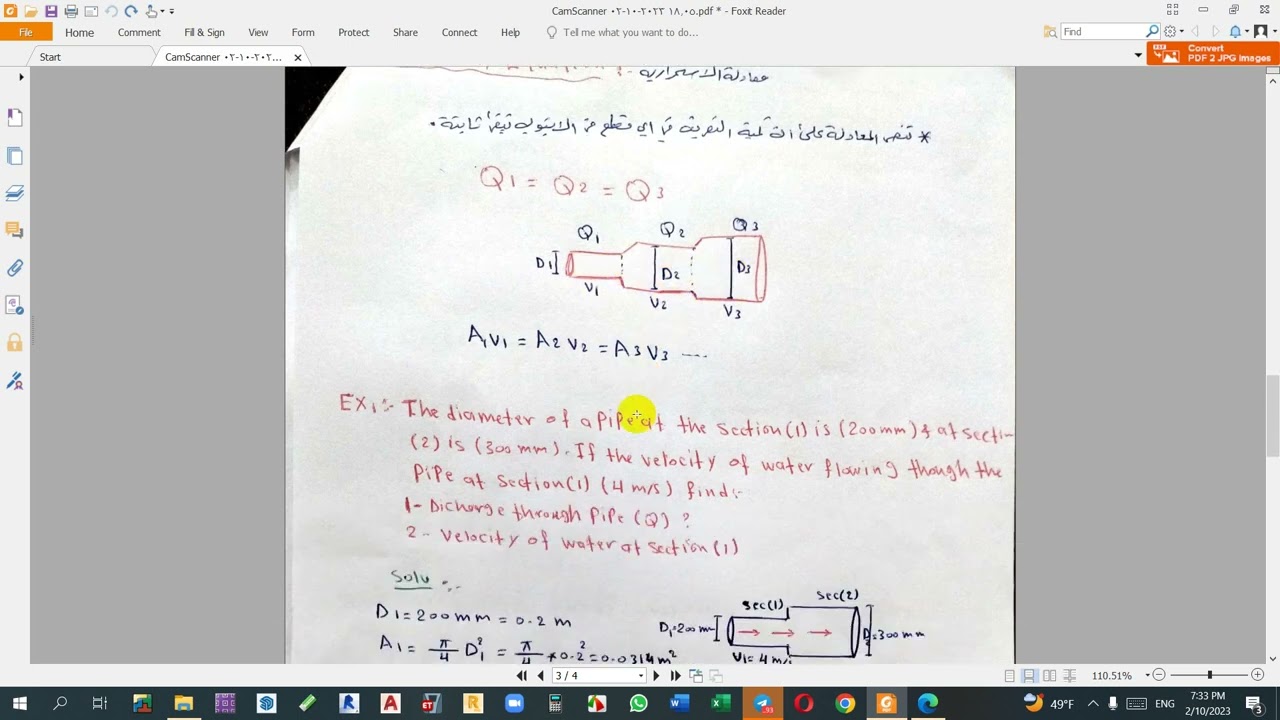 CamScanner ٠٢-١٠-٢٠٢٣ ١٨,٠٥.pdf * - Foxt Reader
File Home Comment Fill & Sign View Form Protect Share Connect Help Tell me what you want to do... Find
Start CamScanner ٠٢-١٠-٢٠٢... ×
Convert
PDF 2 JPG Images
معادلة الاستمرارية
* تنص المعادلة على ان كمية التصريف في اي مقطع من الانبوب تبقى ثابتة .
Q1 = Q2 = Q3
Q1 Q2 Q3
D1 D2 D3
V1 V2 V3
A1V1 = A2V2 = A3V3 ----
EX1:- The diameter of a pipe at the section(1) is (200mm) & at secti-
(2) is (300 mm). If the velocity of water flowing though the
PiPe at section(1) (4 m/s) find:-
1- Dicharge through PiPe (Q) ?
2- Velocity of water at section(1)
Solu :-
D1=200mm = 0.2 m
A1= π/4 D1² = π/4 *0.2²=0.0314m²
sec(1) sec(2)
D1=200m =300mm
V1= 4 m/s
3 / 4
110.51%
49°F ENG 7:33 PM
2/10/2023